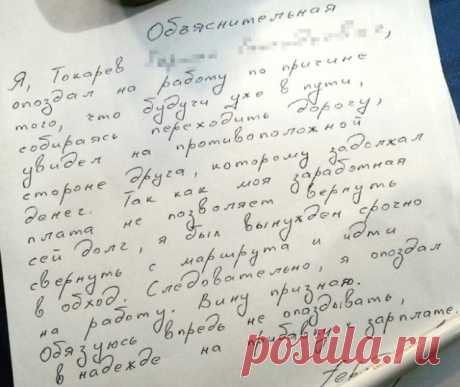 Объяснительная
Я, Токарев
опоздал на работу по причине
того, что будучи уже в пути,
собираясь переходить дорогу,
увидел на противоположной
стороне друга, которому задолжал
денег. Так как моя заработная
плата не позволяет вернуть
сей долг, я был вынужден срочно
свернуть с маршрута и идти
в обход. Следовательно, я опоздал
на работу. Вину признаю.
Обязуюсь впредь не опаздывать,
в надежде на прибавку зарплате.
postila.ru